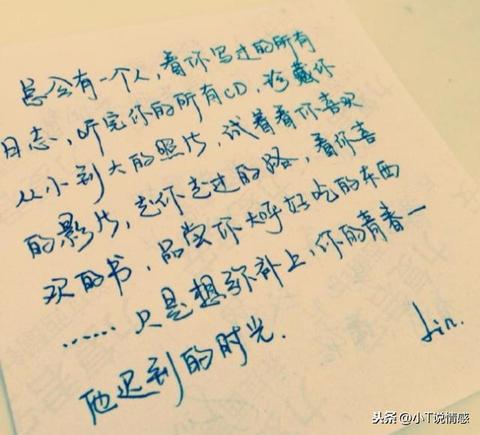 总会有一个人，看你写过的所有
日志，听完你的所有CD，珍藏你
从小到大的照片，试着看你喜欢
的影片，走你走过的路，看你喜
欢的书，品尝你大呼好吃的东西
……只是想弥补上，你的青春一
他迟到的时光.
Lin.
头条 @小T说情感